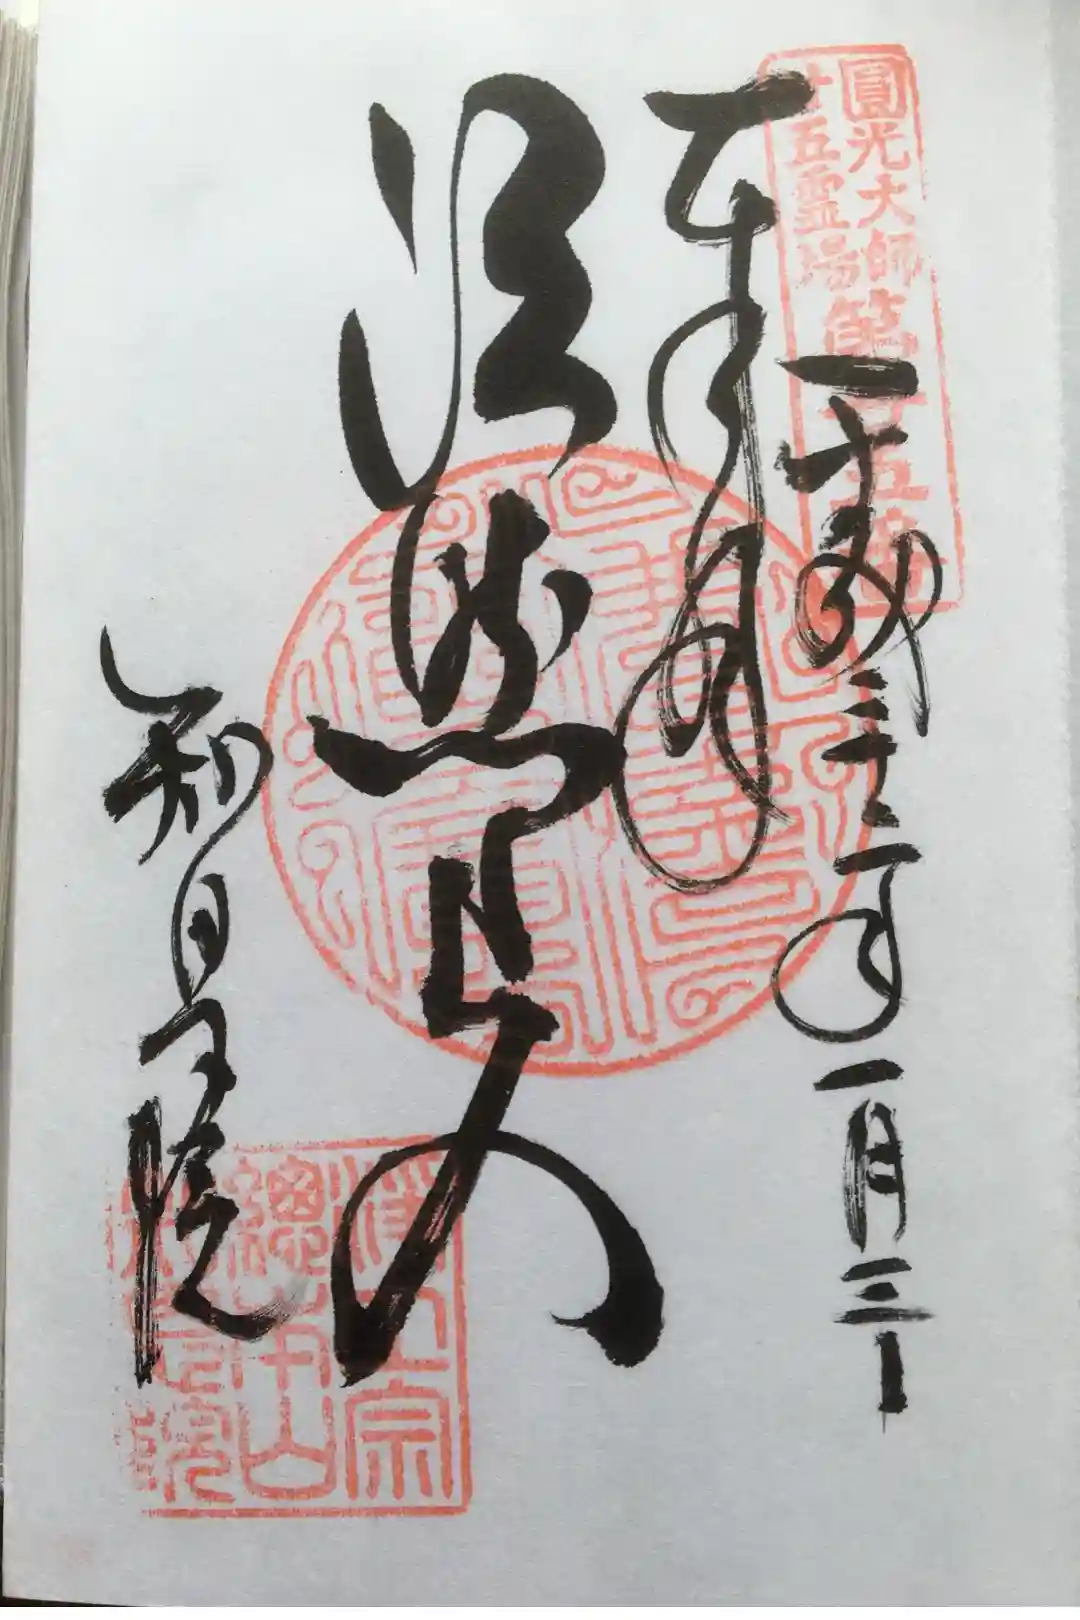 圓光大師
廿五霊場
第廿五番
奉拝
平成三十一年一月三
法然上人
知恩院
浄土宗
總本山
知恩院